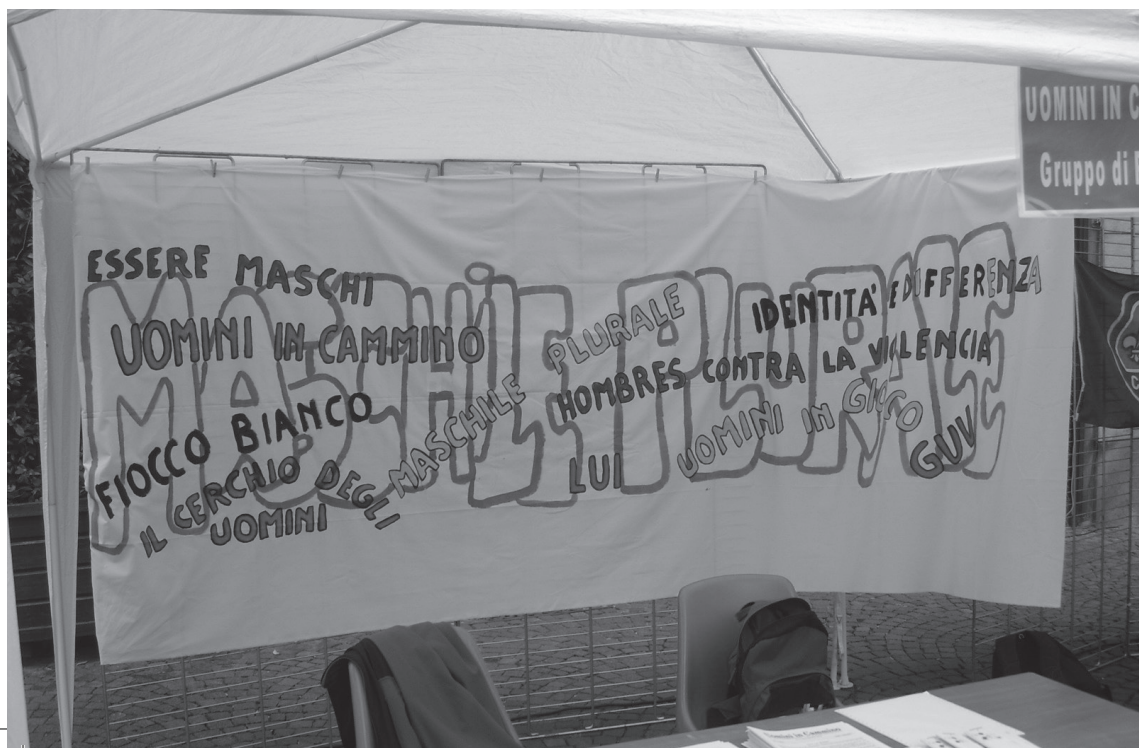 UOMINI IN C
Gruppo di
MASCHiLE PLURALE
ESSERE MASCHI
UOMINI IN CAMMINO
FIOCCO BIANCO
IL CERCHIO DEGLI
UOMINI
MASCHILE PLURALE
IDENTITA' E DIFFERENZA
HOMBRES CONTRA LA VIOLENCIA
LUI
UOMINI IN GIOCO
GUV
Uomini in Cammino